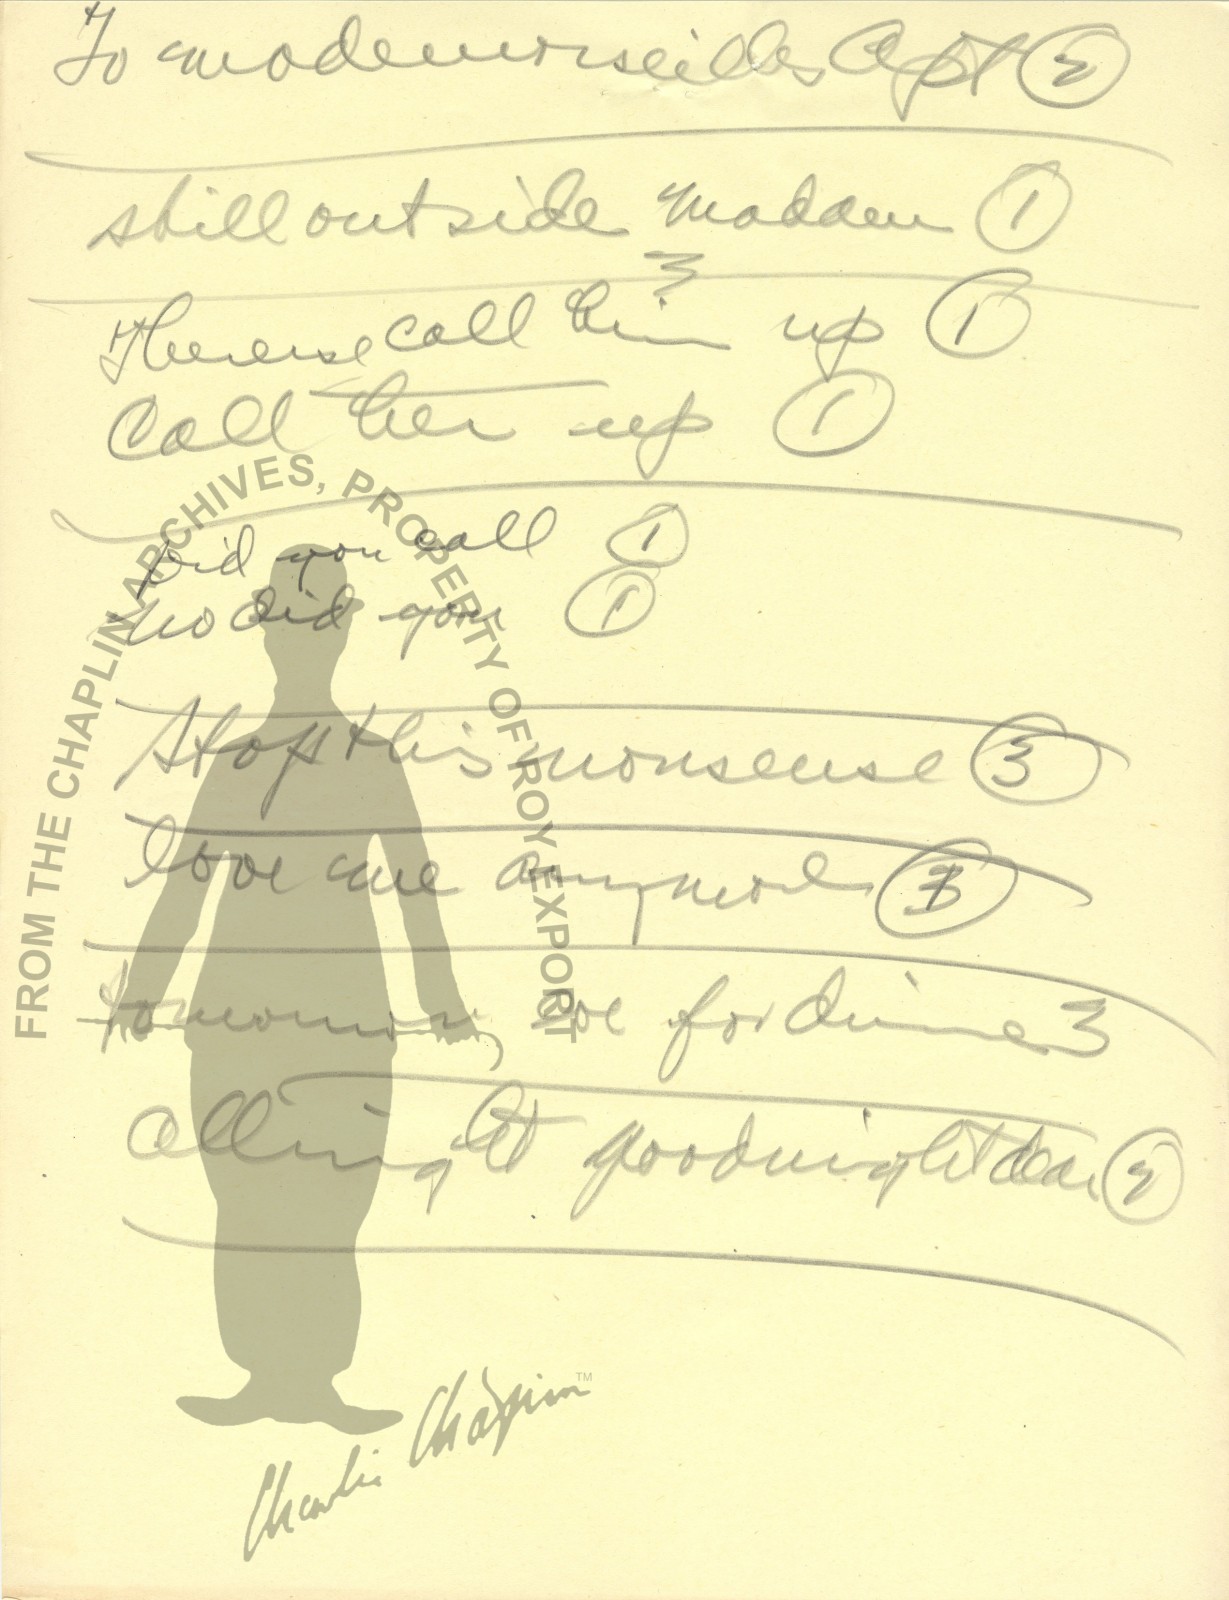 To mademoiselles Apt 2
still outside madam 1
3
Therese call him up 1
Call her up 1
Did you call 1
no did you 1
Stop this nonsense 3
love me anymore
tomorrow, for dinner 3
allright goodnight dear 2
FROM THE CHAPLIN ARCHIVES, PROPERTY OF ROY EXPORT
Charlie Chaplin TM